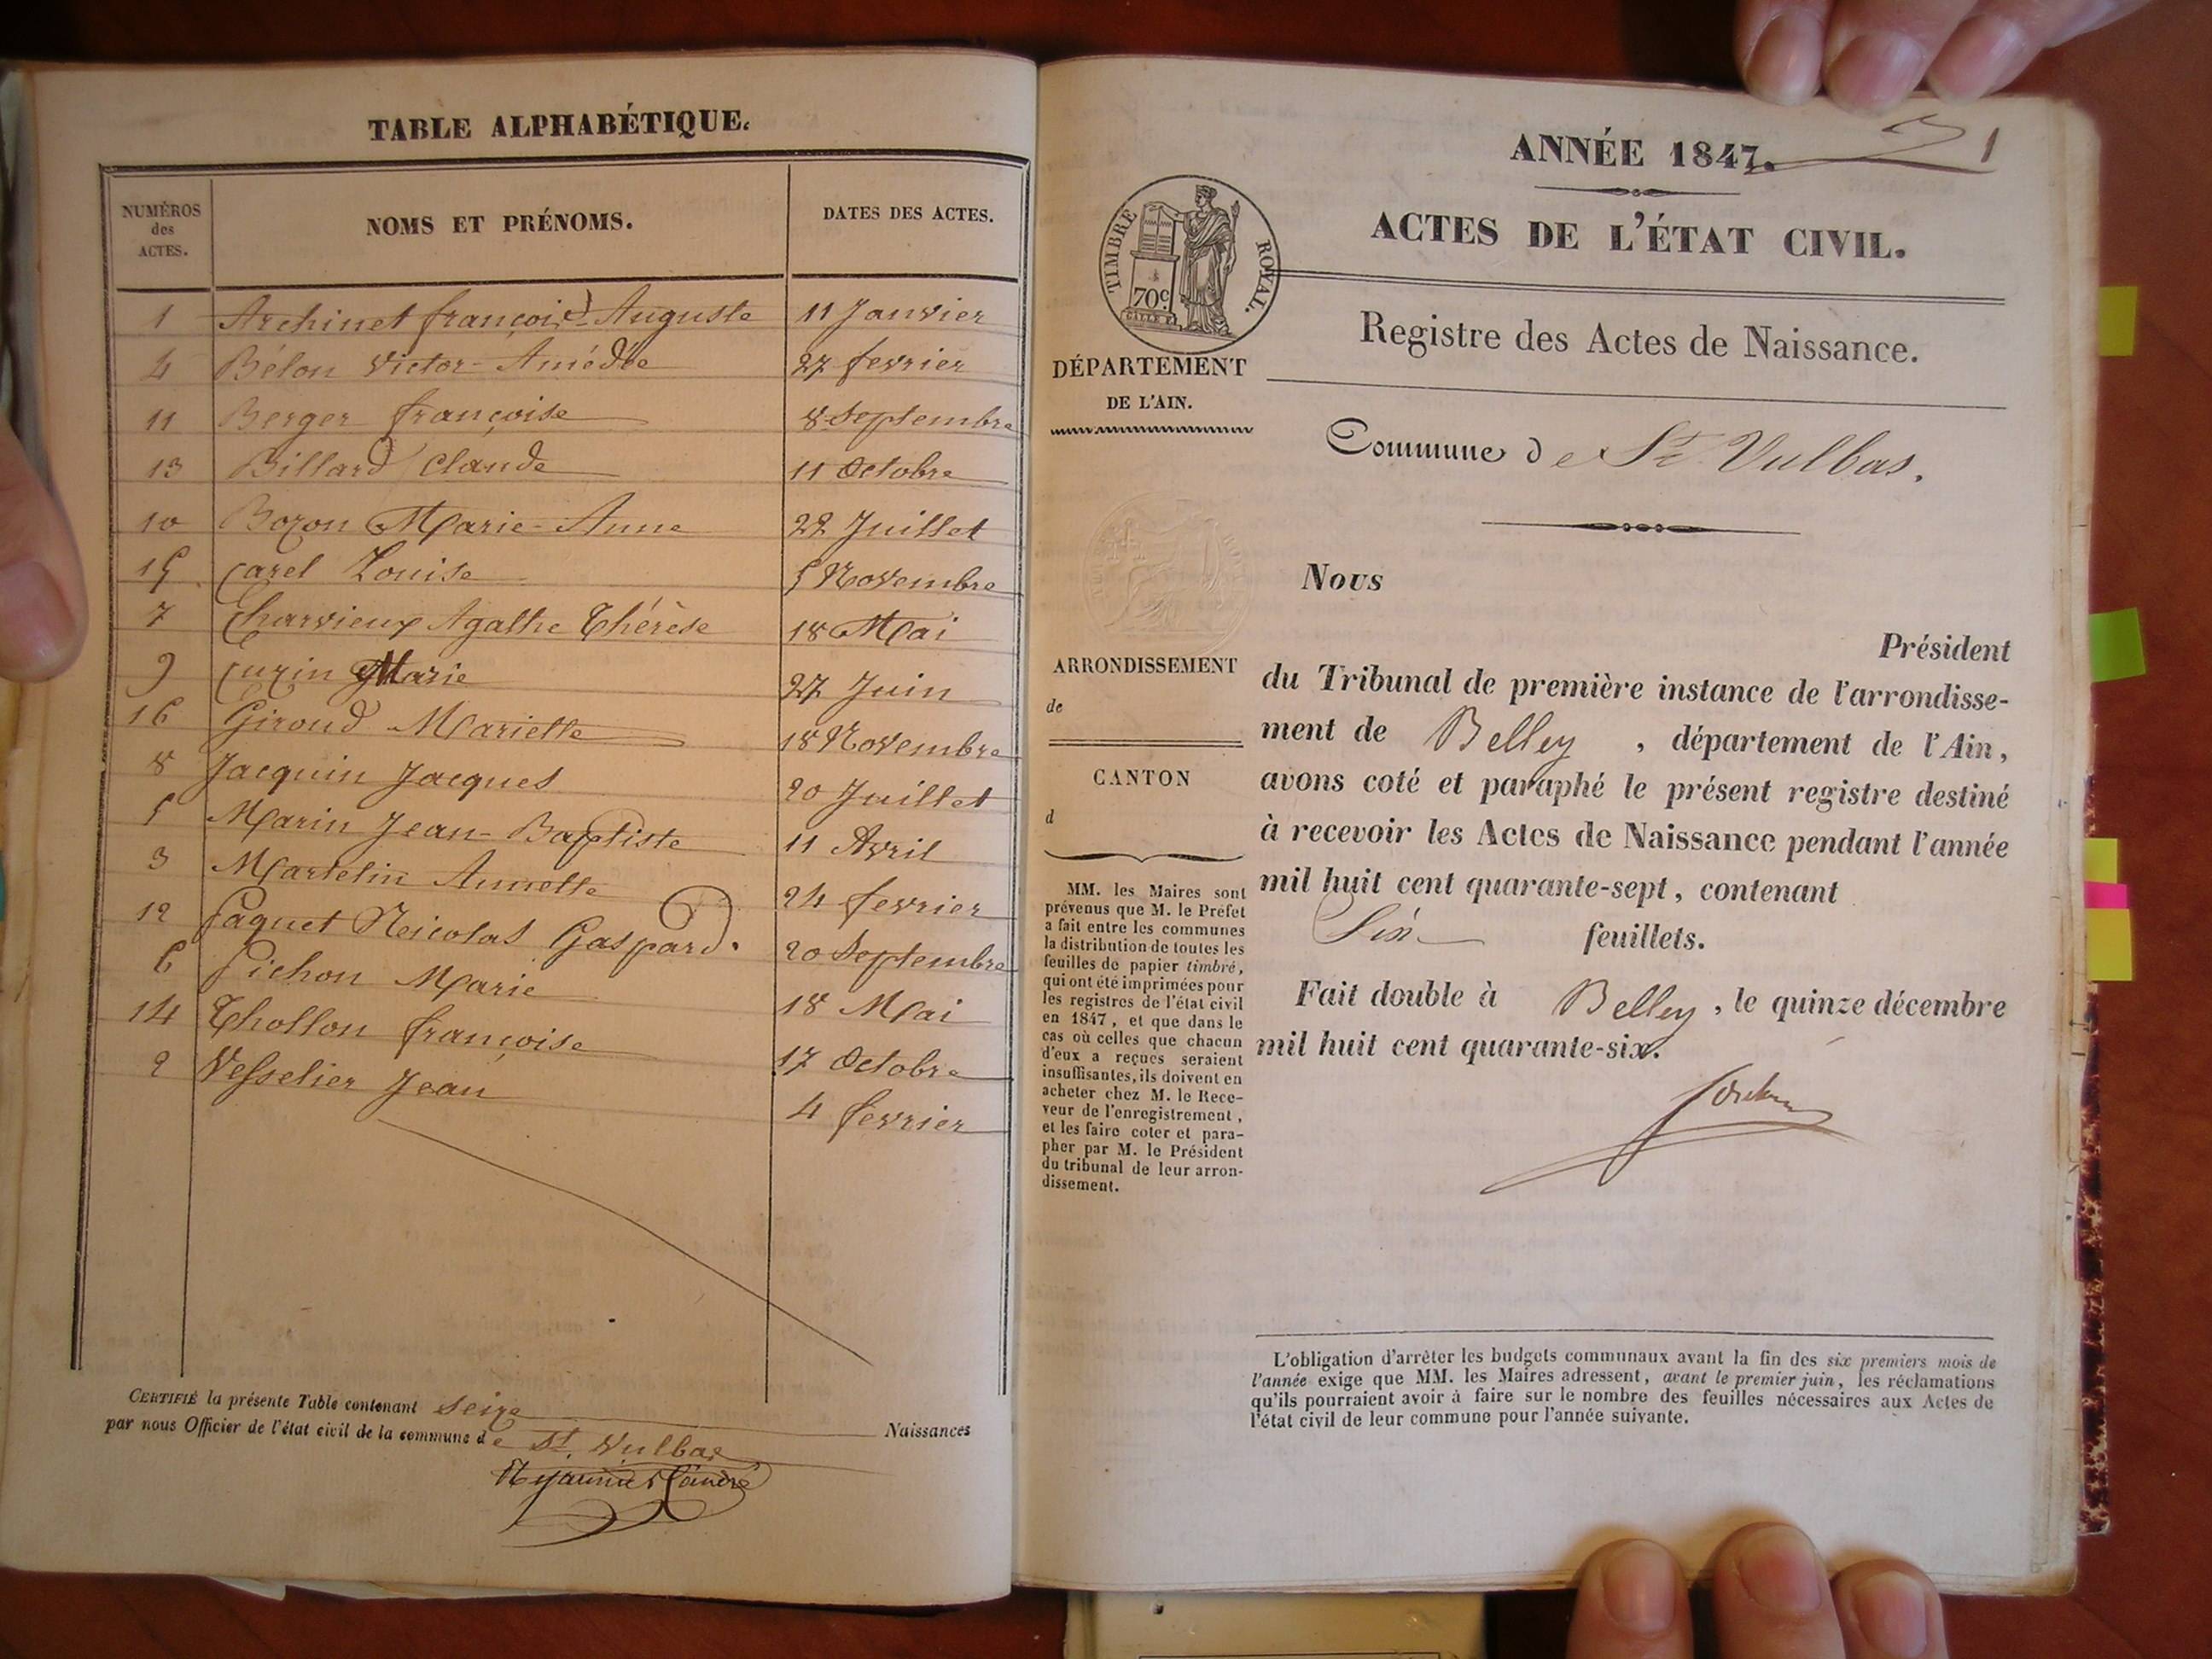 TABLE ALPHABÉTIQUE.
NUMÉROS des ACTES. NOMS ET PRÉNOMS. DATES DES ACTES.
1 Archinet françois-Auguste 11 Janvier
4 Bélon Victor-Amédée 27 fevrier
11 Berger françoise 8 Septembre
13 Billard Claude 11 Octobre
10 Bozon Marie-Anne 22 Juillet
15 Carel Louise 5 Novembre
7 Charvieux Agathe Thérèse 18 Mai
9 Cuzin Marie 27 Juin
16 Giroud Mariette 18 Novembre
8 Jacquin Jacques 20 Juillet
5 Marin Jean-Baptiste 11 Avril
3 Martelin Annette 24 fevrier
12 Paquet Neicolas Gaspard. 20 Septembre
6 Pichon Marie 18 Mai
14 Thollon françoise 17 Octobre
2 Vesselier Jean 4 fevrier
CERTIFIÉ la présente Table contenant seize Naissances
par nous Officier de l'état civil de la commune de St. Vulbas
ANNÉE 1847. 1
ACTES DE L'ÉTAT CIVIL.
TIMBRE ROYAL.
70c
Registre des Actes de Naissance.
DÉPARTEMENT
DE L'AIN.
Commune de St. Vulbas.
Nous
Président
ARRONDISSEMENT
de
du Tribunal de première instance de l'arrondisse-
ment de Belley, département de l'Ain,
CANTON
d
avons coté et paraphé le présent registre destiné
à recevoir les Actes de Naissance pendant l'année
mil huit cent quarante-sept, contenant
Six feuillets.
Fait double à Belley, le quinze décembre
mil huit cent quarante-six.
MM. les Maires sont
prévenus que M. le Préfet
a fait entre les communes
la distribution de toutes les
feuilles de papier timbré,
qui ont été imprimées pour
les registres de l'état civil
en 1847, et que dans le
cas où celles que chacun
d'eux a reçues seraient
insuffisantes, ils doivent en
acheter chez M. le Rece-
veur de l'enregistrement,
et les faire coter et para-
pher par M. le Président
du tribunal de leur arron-
dissement.
L'obligation d'arrêter les budgets communaux avant la fin des six premiers mois de
l'année exige que MM. les Maires adressent, avant le premier juin, les réclamations
qu'ils pourraient avoir à faire sur le nombre des feuilles nécessaires aux Actes de
l'état civil de leur commune pour l'année suivante.